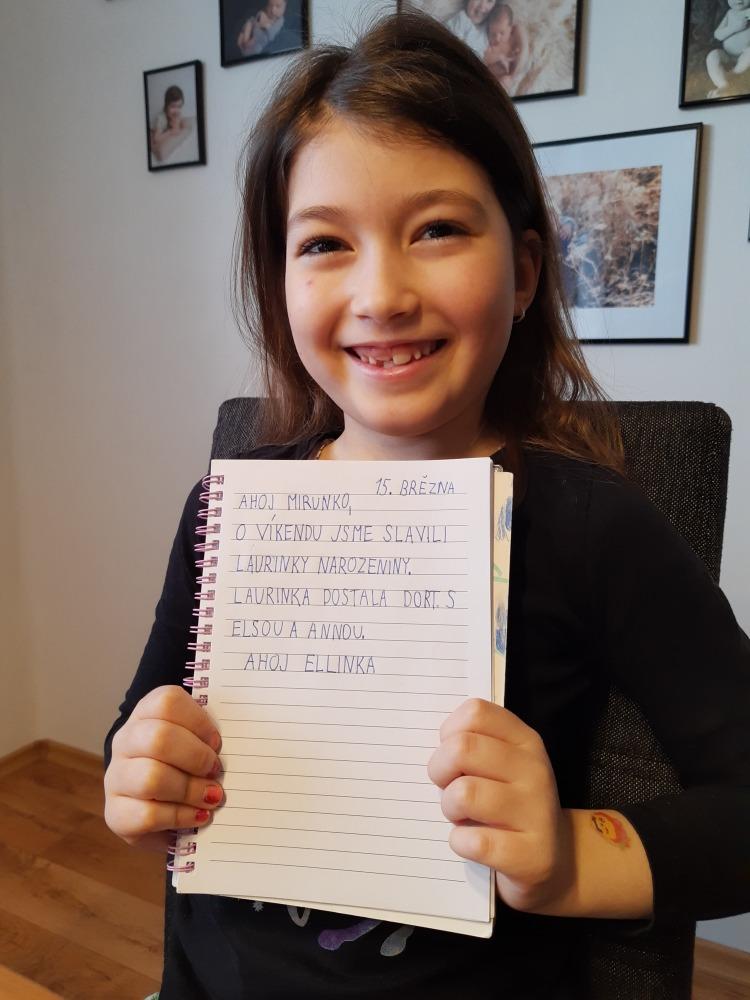 15. BŘĚZNA
AHOJ MIRUNKO,
O VÍKENDU JSME SLAVILI
LAURINKY NAROZENINY.
LAURINKA DOSTALA DORT. S
ELSOU A ANNOU.
AHOJ ELLINKA